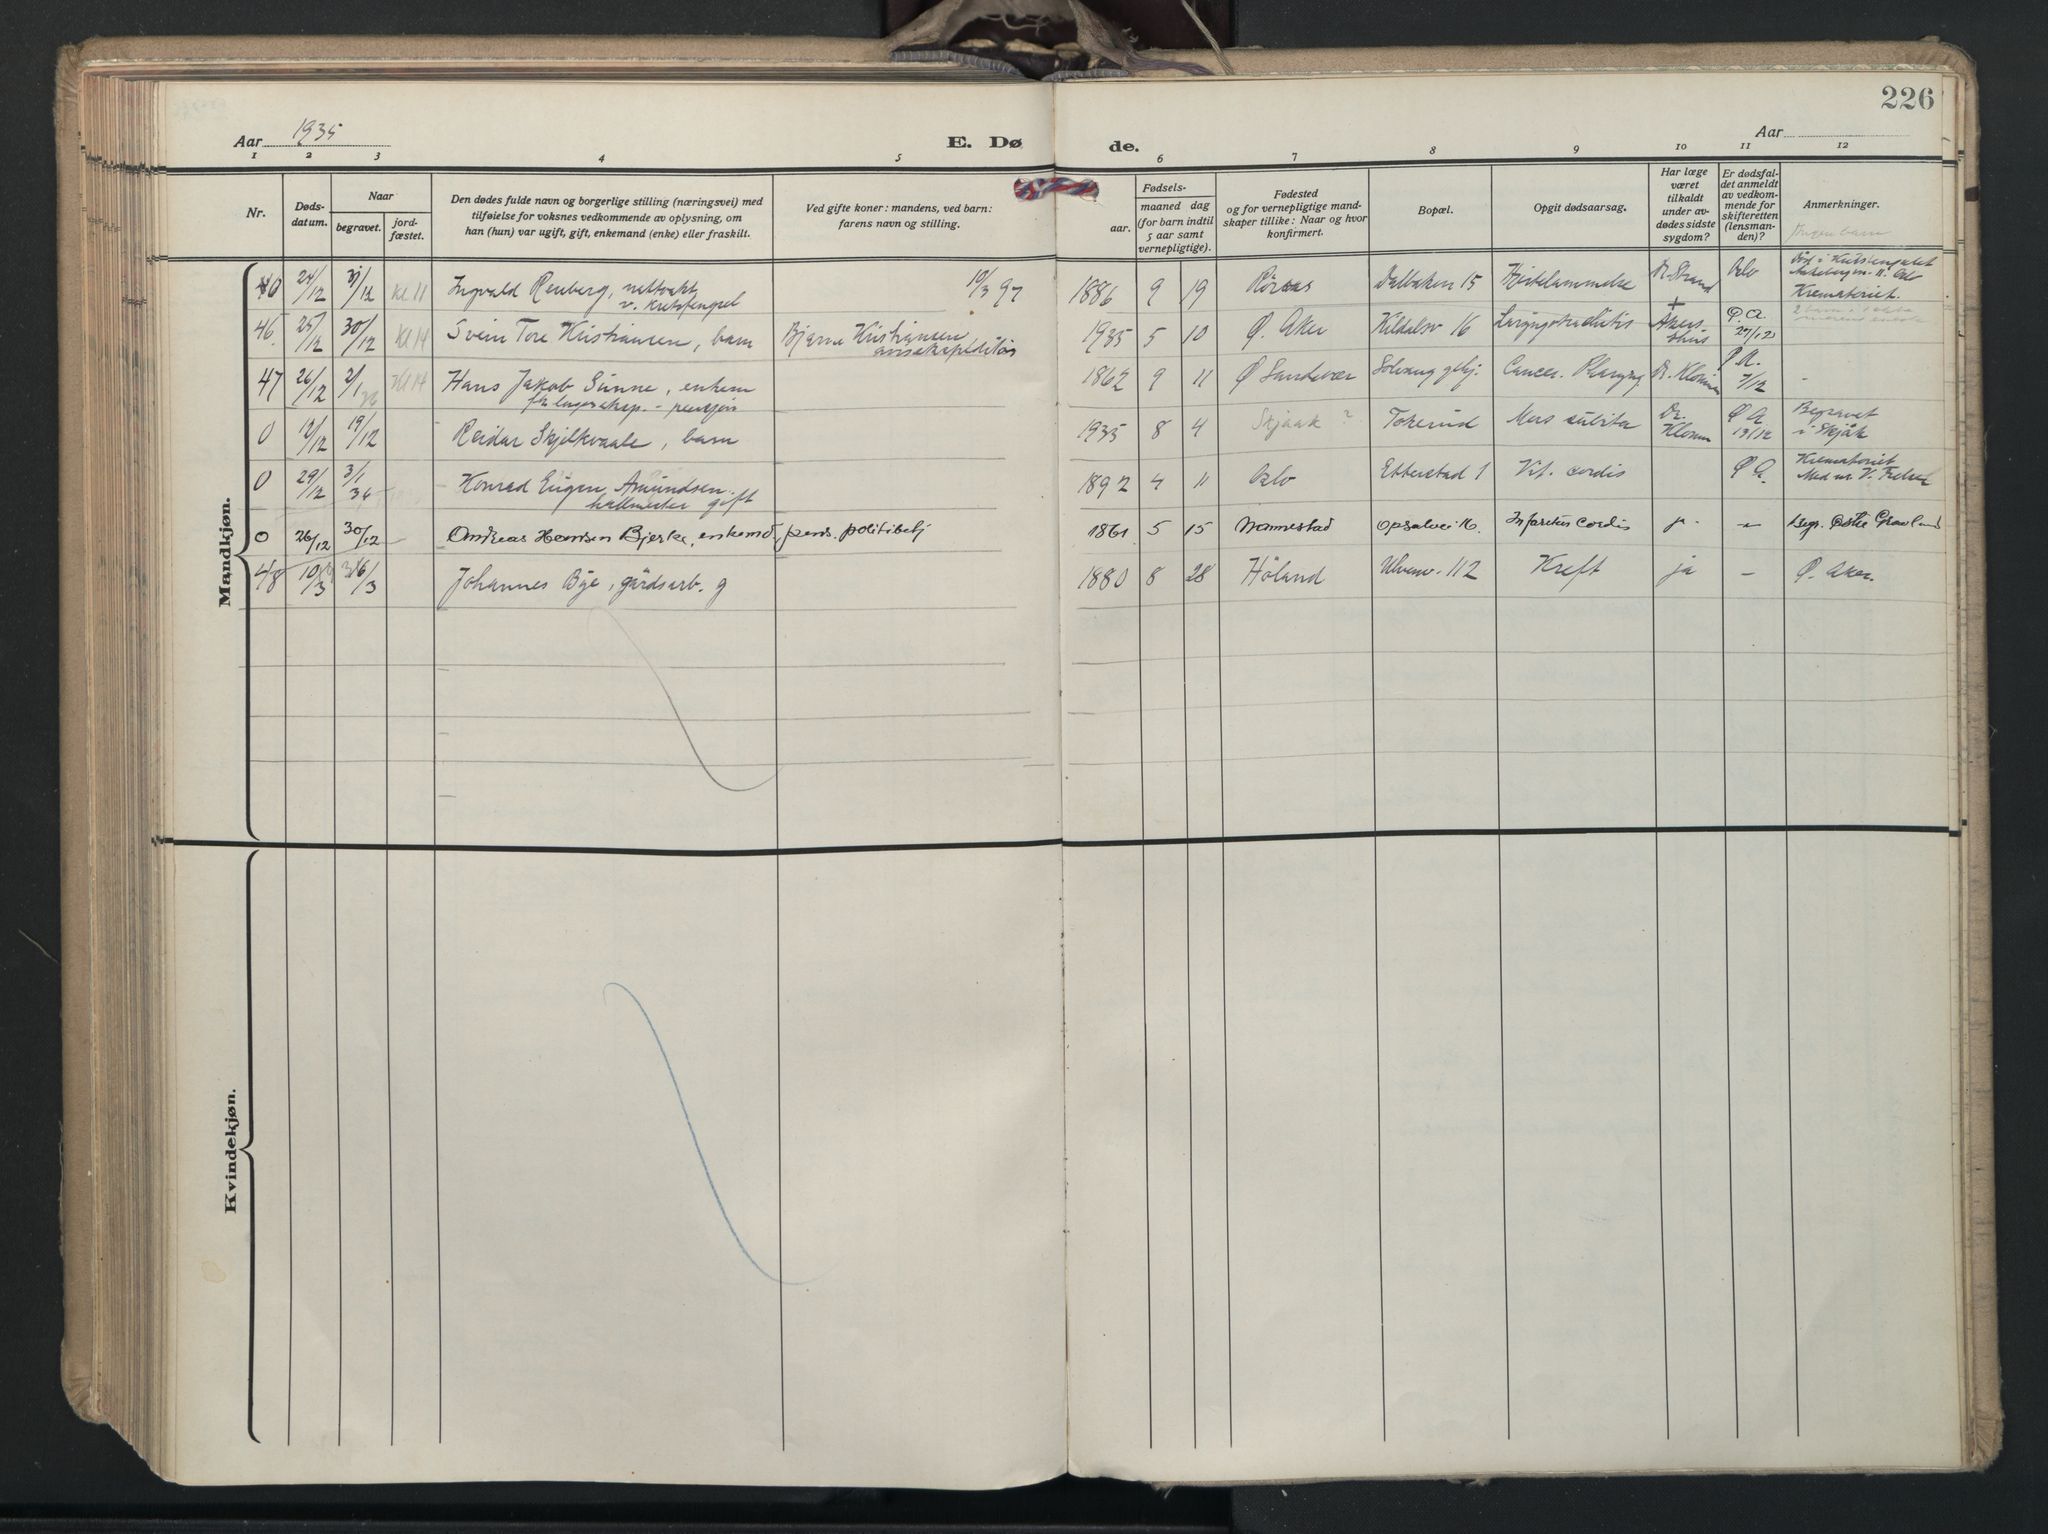 226
Aar 1935
E. Dø
de.
Aar
1 2 3 4 5 6 7 8 9 10 11 12
Nr.
Døds-
datum.
Naar
begravet.
jord-
fæstet.
Den dødes fulde navn og borgerlige stilling (næringsvei) med
tilføielse for voksnes vedkommende av oplysning, om
han (hun) var ugift, gift, enkemand (enke) eller fraskilt.
Ved gifte koner: mandens, ved barn:
farens navn og stilling.
Fødsels-
aar.
maaned dag
(for barn indtil
5 aar samt
vernepligtige).
Fødested
og for vernepligtige mand-
skaper tillike: Naar og hvor
konfirmert.
Bopæl.
Opgit dødsaarsag.
Har læge
været
tilkaldt
under av-
dødes sidste
sygdom?
Er dødsfal-
det anmeldt
av vedkom-
mende for
skifteretten
(lensman-
den)?
Anmerkninger.
Ingen barn
Mandkjøn.
0 24/12 31/12 kl 11 Ingvald Renberg, nattvakt 19/3 97 1886 9 19 Røraas Dalbaken 15 Hjertelammelse Dr. Strand Oslo
v. Kretsfengsel
Krematoriet.
46. 25/12 30/12 kl 14 Svein Tore Kristiansen, barn Bjarne Kristiansen 1935 5 10 Ø. Aker Kildalsv 16 Laryngotracheitis + Akers- Ø.A. 27/12
hus
47 26/12 2/1 36 kl 14 Hans Jakob Sunne, enkem 1862 9 11 Ø Sandvær Solvang ghj. Cancer. Dr. Klouman Ø.A. 7/12 -
fhv lagereksp. - pensjon
0 12/12 19/12 Reidar Skjelkvaale, barn 1935 8 4 Skjaak ? Tokerud Mors subita Dr. Ø A 13/12 Begravet
i Skjåk
0 29/12 3/1 36 Konrad Eugen Amundsen. 1892 4 11 Oslo Etterstad 1 Vit. cordis Ø A. Krematoriet
hallmester gift
0 26/12 30/12 Andreas Hansen Bjerke, enkemd, pens. politibetj 1861 5 15 Nannestad Opsalvei 16. Infarctus cordis ja - - Begr. Østre Grønlund
48 10/3 16/3 Johannes Bye, gårdsarb. g 1880 8 28 Høland Ulvenv. 112 Kreft ja - Ø. Aker.
Kvindekjøn.